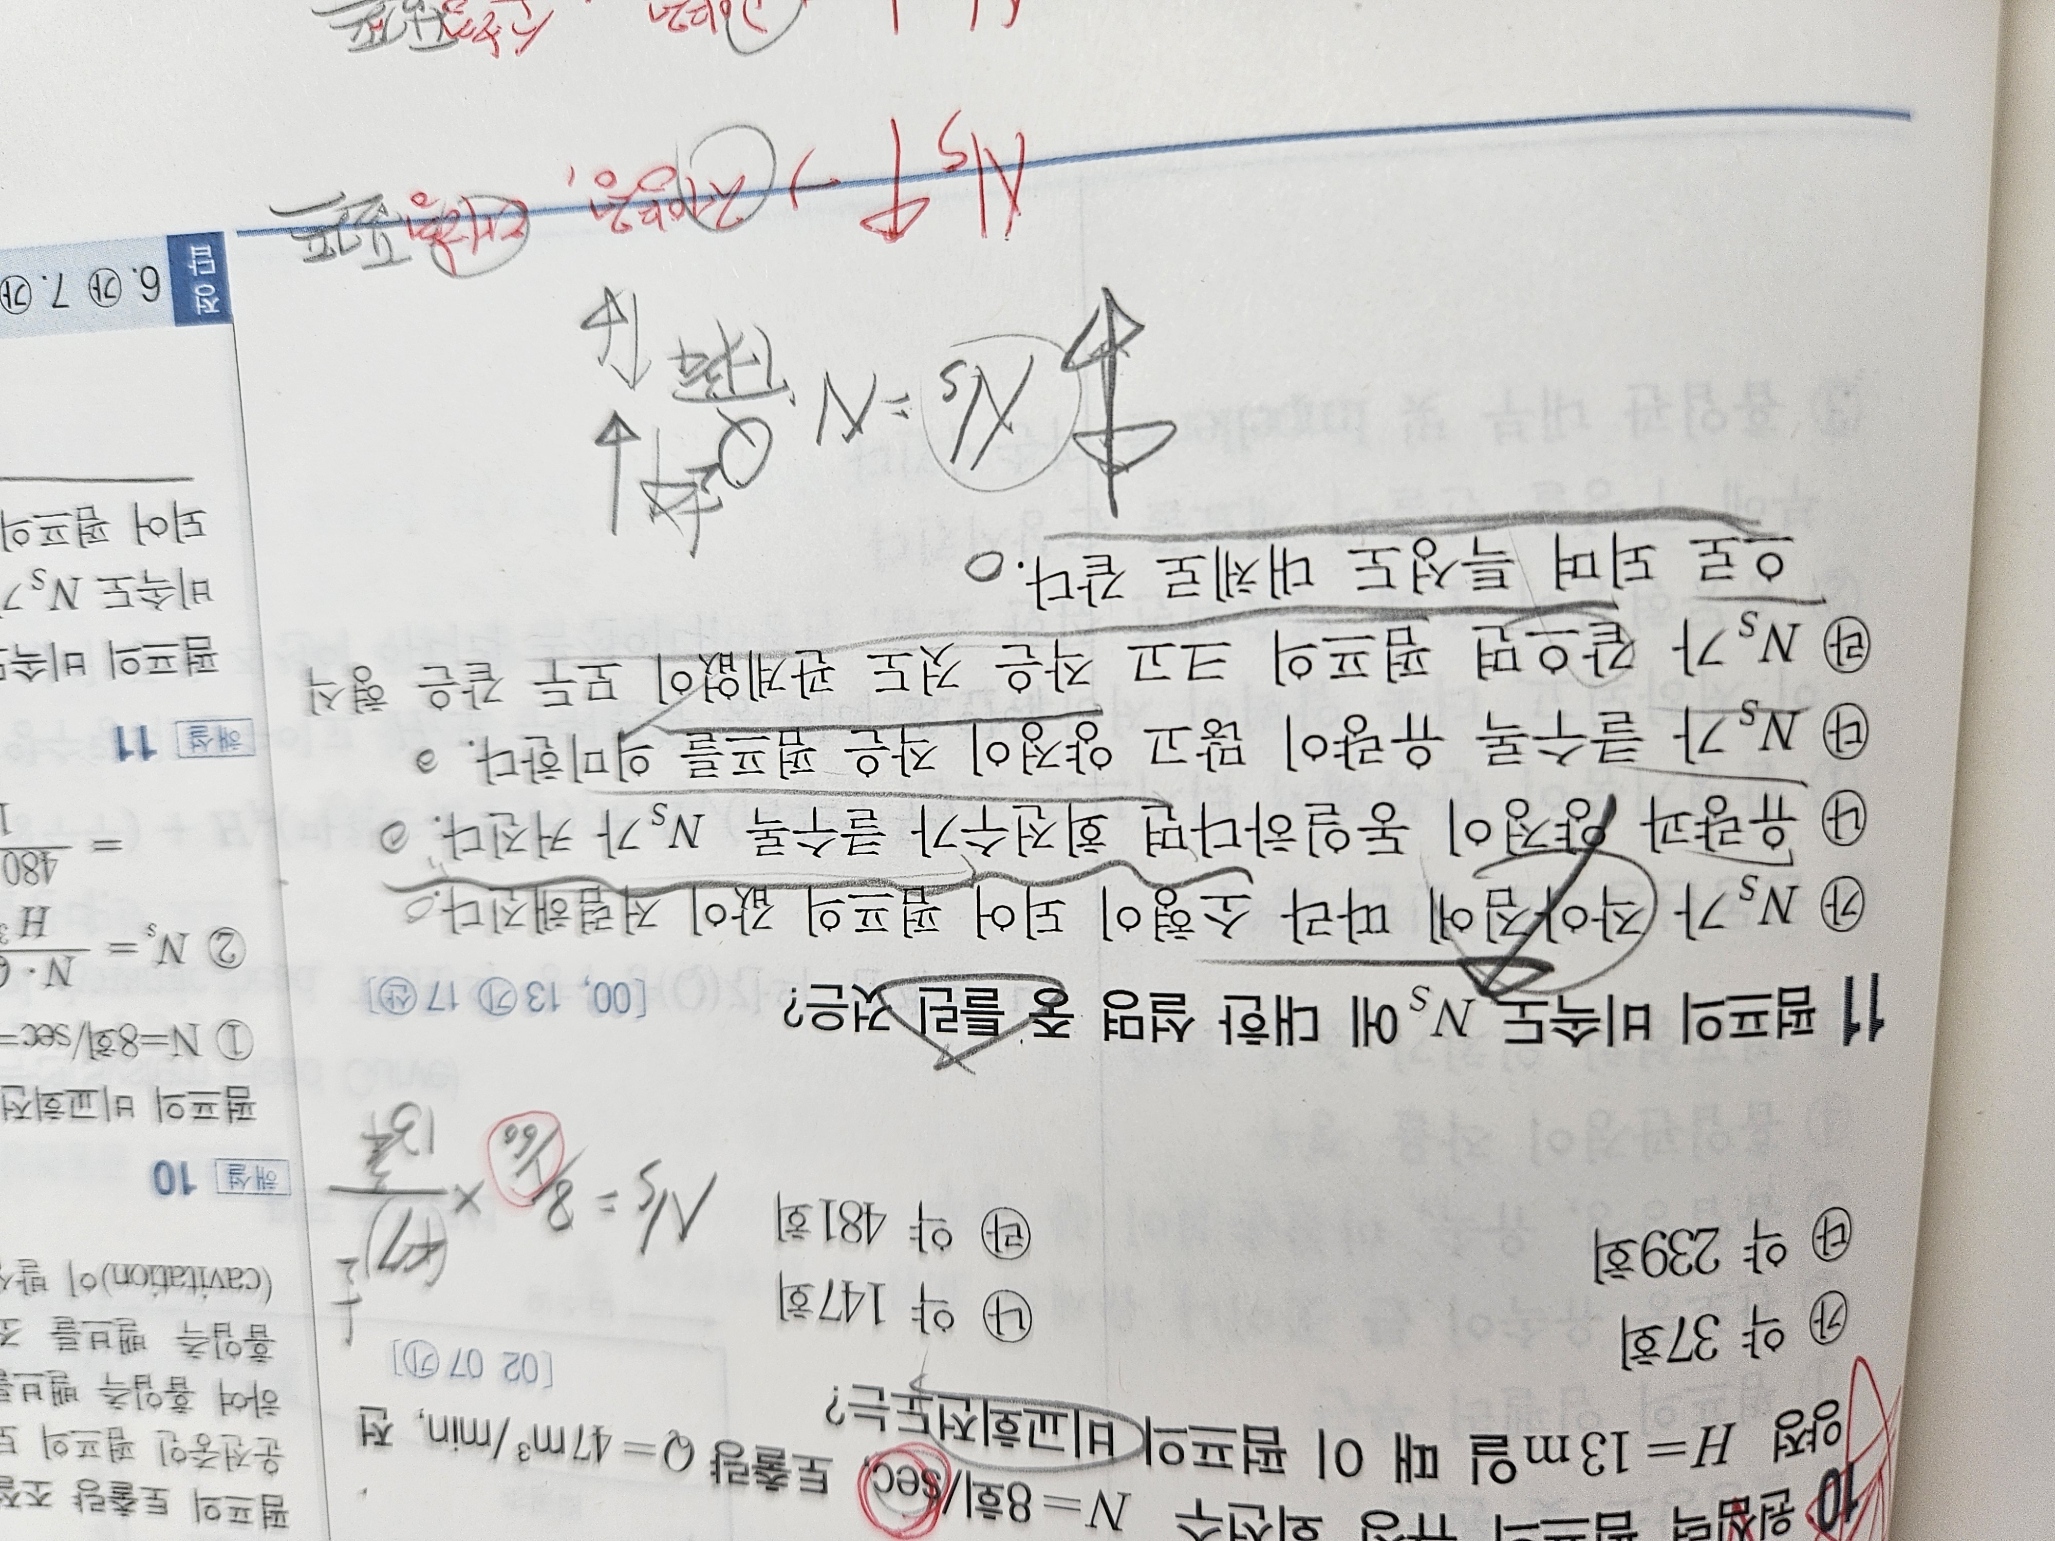 10 원심력 펌프의 규정 회전수 N=8회/sec, 토출량 Q=47m³/min, 전
양정 H=13m일 때 이 펌프의 비교회전도는?
[02 07 ㉮]
㉮ 약 37회 ㉯ 약 147회
㉰ 약 239회 ㉱ 약 481회
11 펌프의 비속도 N_S에 대한 설명 중 틀린 것은?
[00, 13 ㉮ 17 ㉦]
㉮ N_S가 작아짐에 따라 소형이 되어 펌프의 값이 저렴해진다.
㉯ 유량과 양정이 동일하다면 회전수가 클수록 N_S가 커진다.
㉰ N_S가 클수록 유량이 많고 양정이 작은 펌프를 의미한다.
㉱ N_S가 같으면 펌프의 크고 작은 것도 관계없이 모두 같은 형식
으로 되며 특성도 대체로 같다.
N_S = N
Ns ↑ →
펌프의 토출량 조절
운전중인 펌프의
하여 흡입측 밸브를
흡입측 밸브를
(cavitation)이
해설 10
펌프의 비교회전
① N=8회/sec=
② N_s =
480
해설 11
펌프의 비속도
비속도 N_S
되어 펌프의
정답 6. ㉮ 7. ㉮